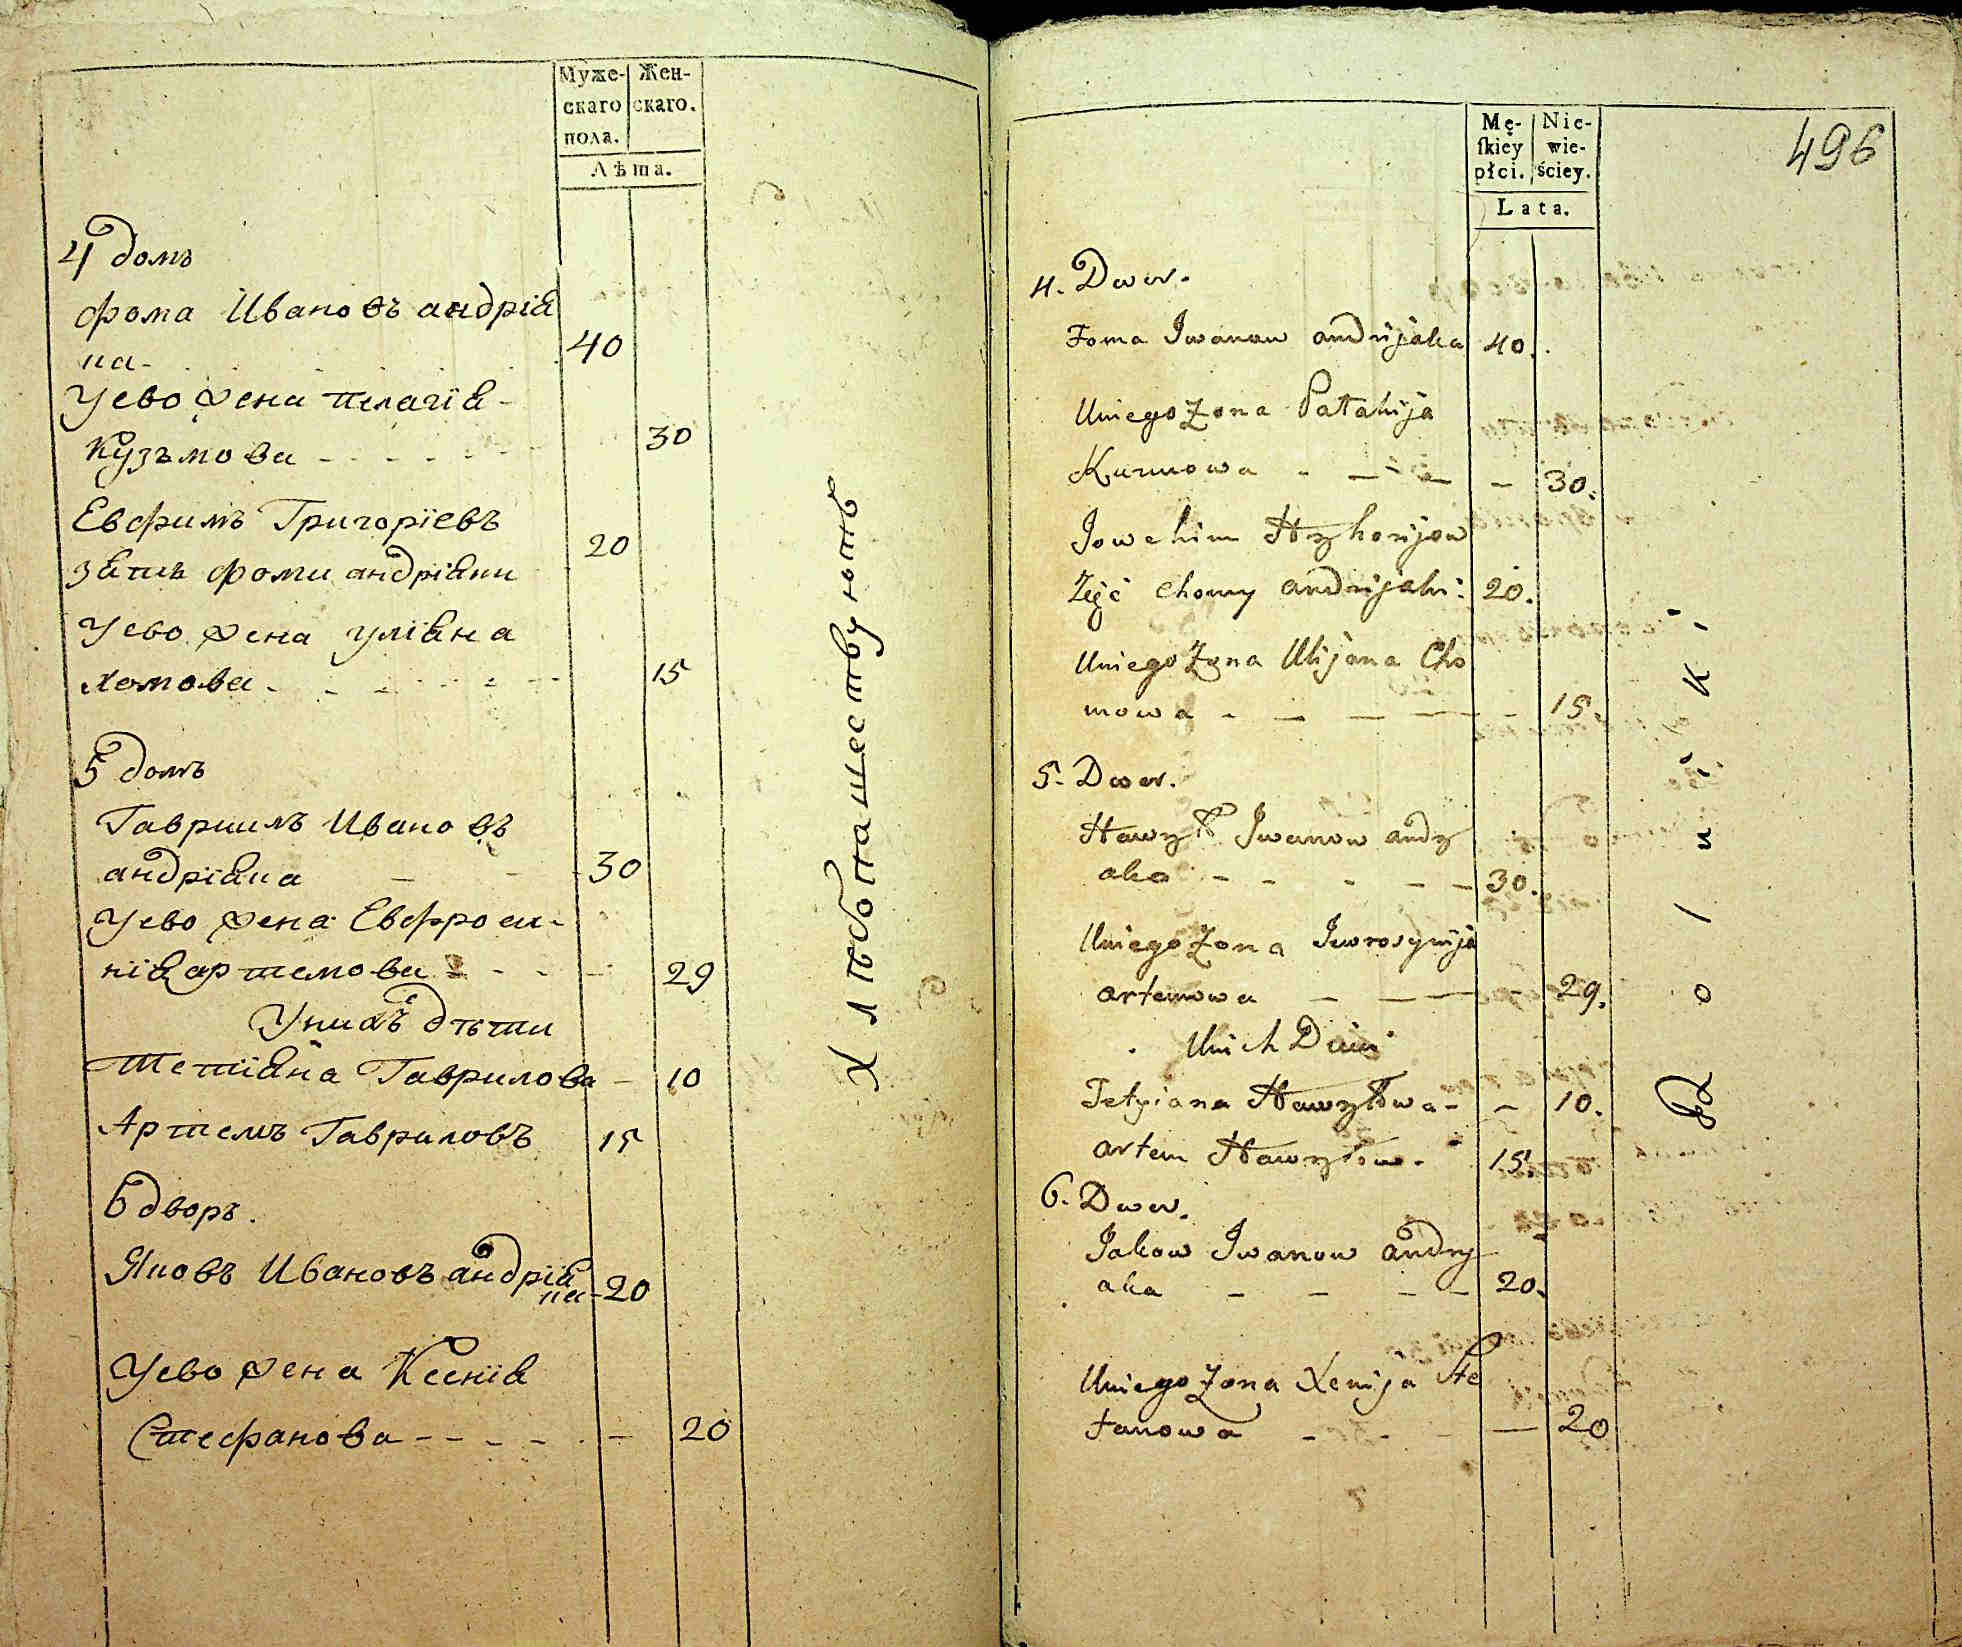 Муже- Жен-
скаго скаго.
пола.
Лѣта.
4 домъ
Фома Ивановъ андрія
ка - 40
У ево жена Пелагія -
Кузьмова - - - - 30
Евфимъ Григоріевъ
зать Фоми андріяки 20
У ево жена Уліяна
Хомова - - - - 15
5 домъ
Гавриилъ Ивановъ
андріяка - - - 30
У ево жена Евфроси-
нія артемова - - - 29
У нихъ дѣти
Тетіяна Гаврилова - 10
Артемъ Гавриловъ 15
6 дворъ.
Яковъ Ивановъ андрія
ка - 20
У ево жена Ксенія
Стефанова - - - - - 20
Хлѣбопашествуютъ
496
Mę- Nie-
ſkiey wie-
płci. ściey.
Lata.
4. Dwor.
Foma Iwanow andrijaka 40.
Uniego Zona Pałahija
Kuzmowa - - - - - 30.
Jowchim Hryhorijow
Zęć Chomy andrijaki 20.
Uniego Zona Ulijana Cho
mowa - - - - - 15.
5. Dwor.
Hawrył Iwanow andry
aka - - - - - 30.
Uniego Zona Iwrosynija
artemowa - - - - 29.
Unich Dzieci
Tetyiana Hawryłowa - - 10.
artem Hawryłow. 15.
6. Dwor.
Jakow Iwanow andry
aka - - - - 20.
Uniego Zona Xenija Ste
fanowa - - - - - 20
Rolniki